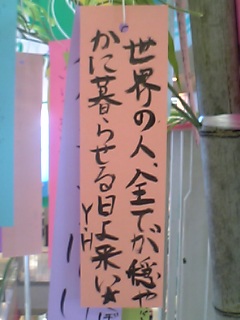 世界の人、全てが穏や
かに暮らせる日よ来い★
Y.H